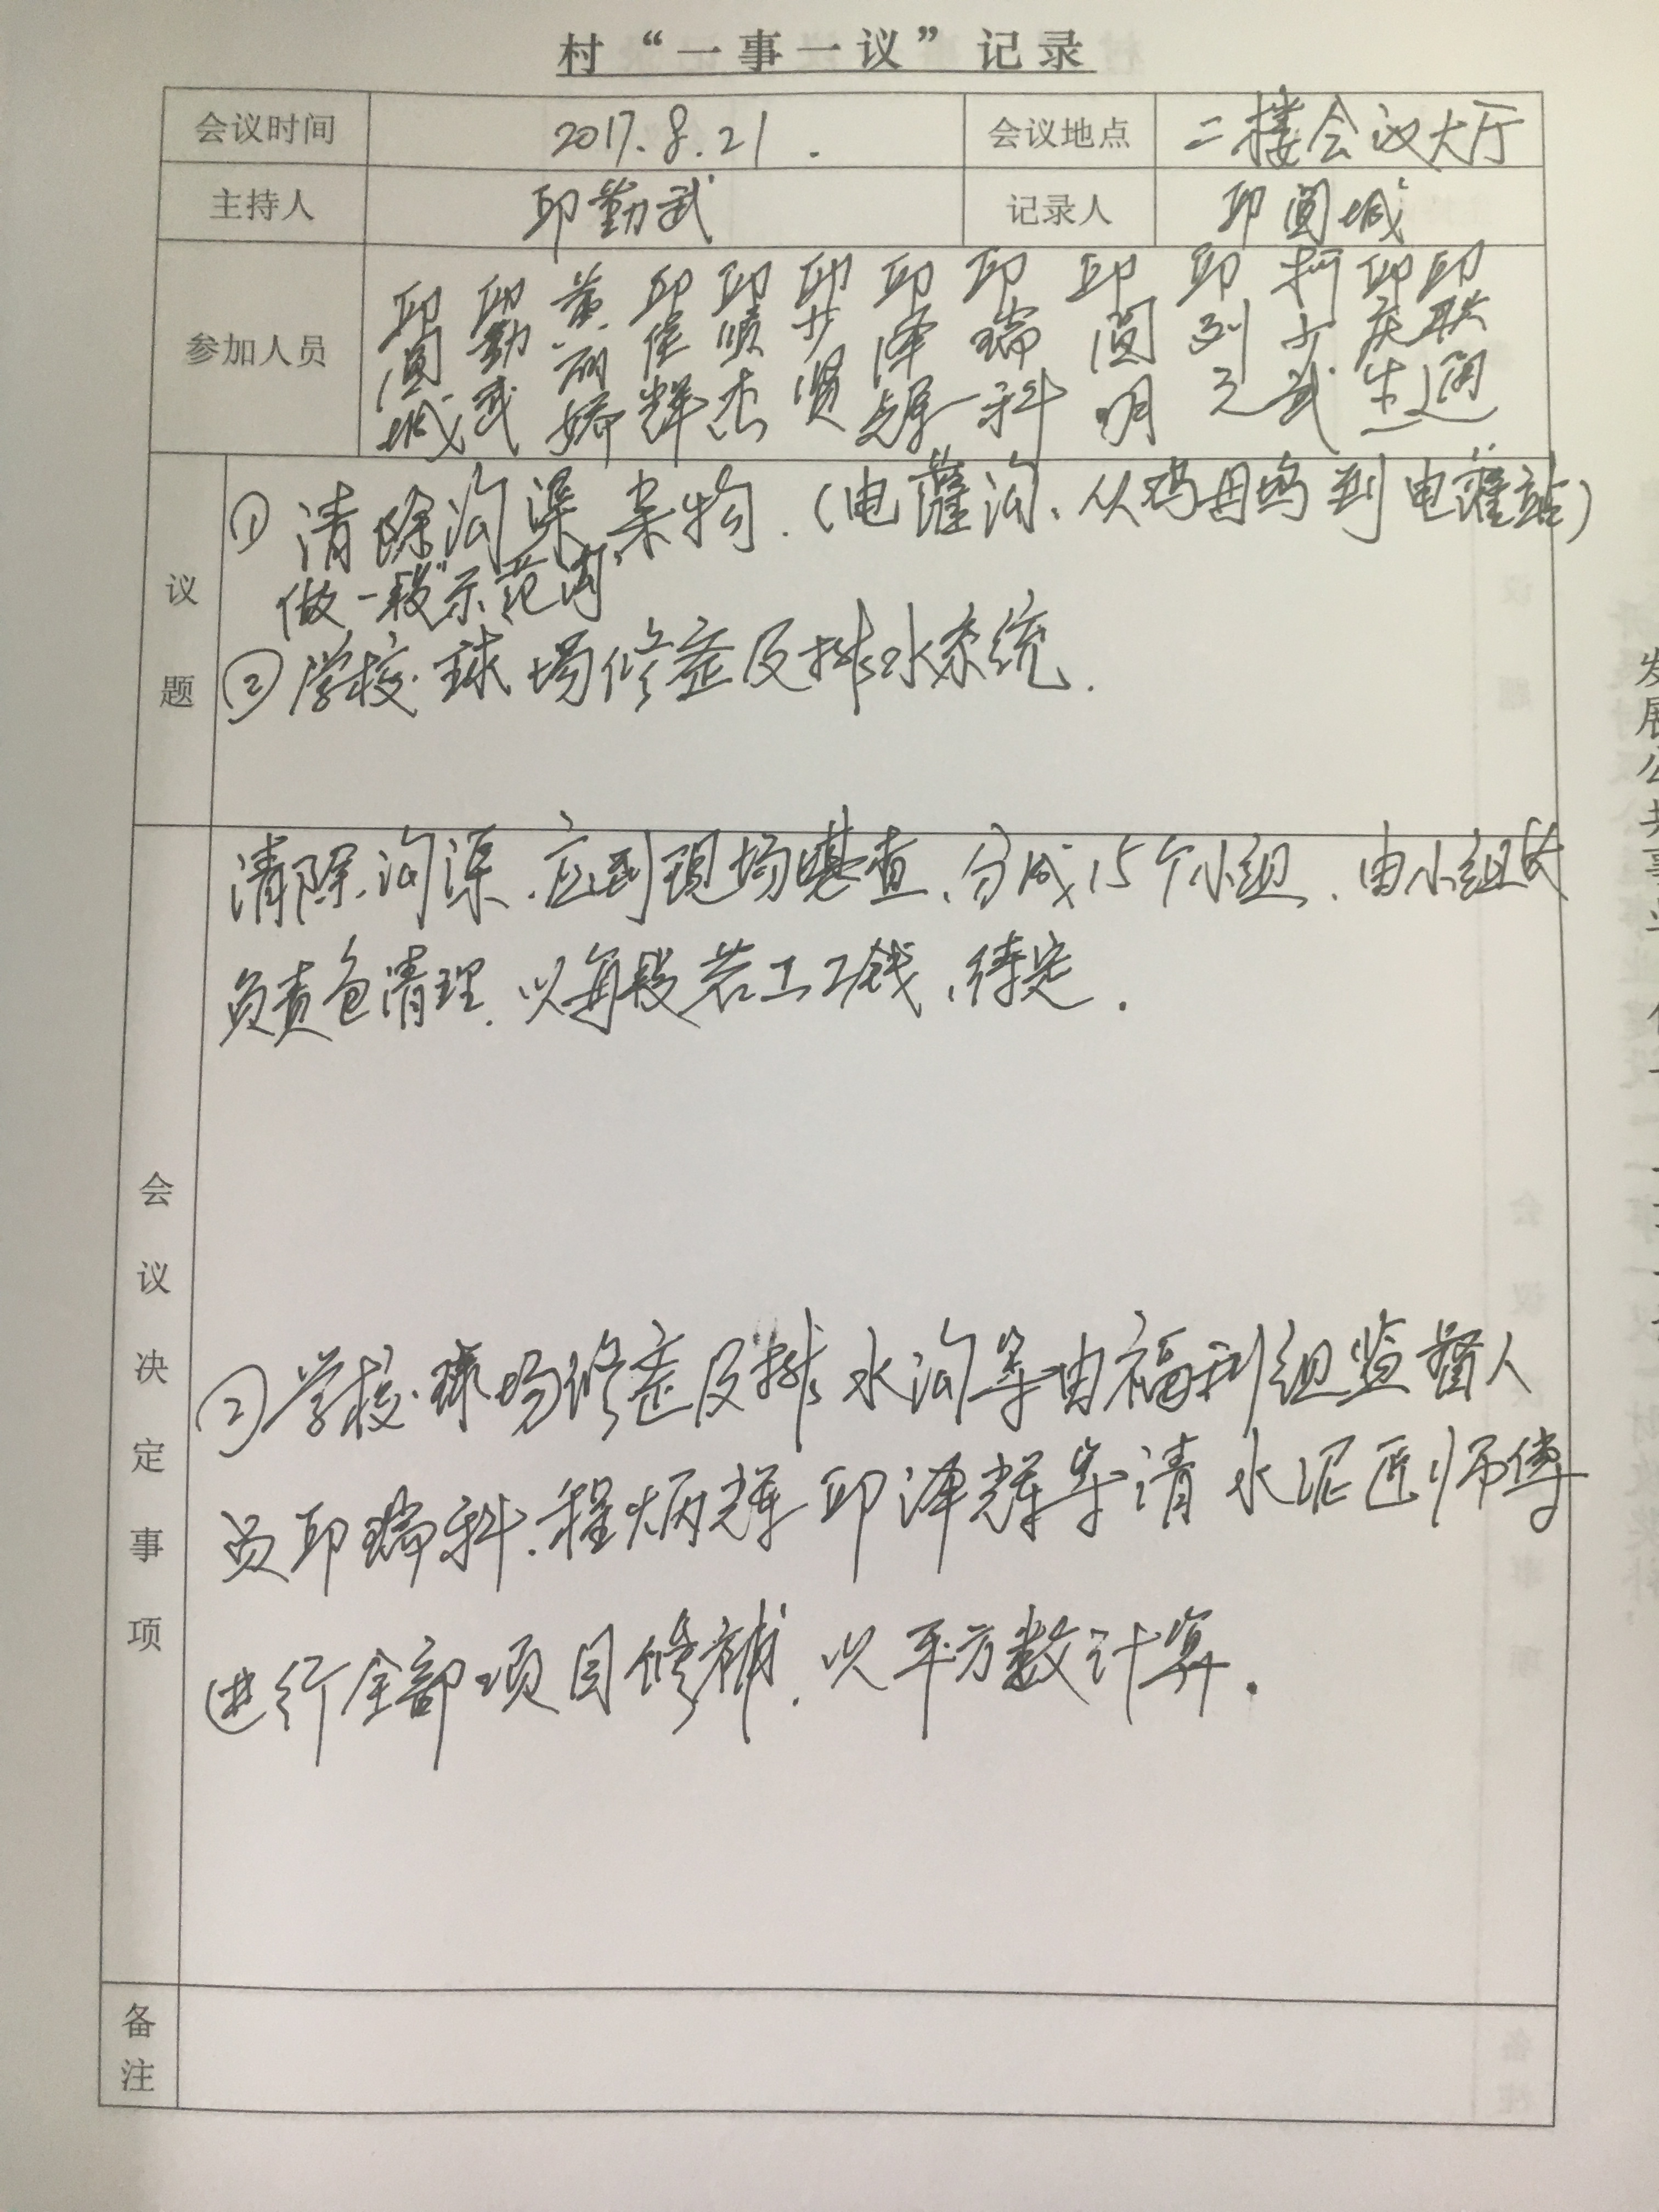 村“一事一议”记录
会议时间 2017.8.21. 会议地点 二楼会议大厅
主持人 邱勤武 记录人 邱圆城
参加人员 邱圆城 邱勤武 黄丽娇 邱佳辉 邱顺杰 邱少贤 邱泽辉 邱瑞科 邱圆明 邱到元 柯少武 邱庆生 邱联通
议题
① 清除沟渠杂物.(电灌沟、从鸡母坞到电灌站)
做一段“示范沟”
②学校球场修整及排水系统.
会议决定事项
清除沟渠、应到现场堪查、分成15个小组、由小组长
负责包清理.以每段若工工钱、待定.
②学校球场修整及排水沟等由福利组监督人
员邱瑞科.程炳辉 邱泽辉等请水泥匠师傅
进行全部项目修补.以平方数计算.
备注
发展公共事业